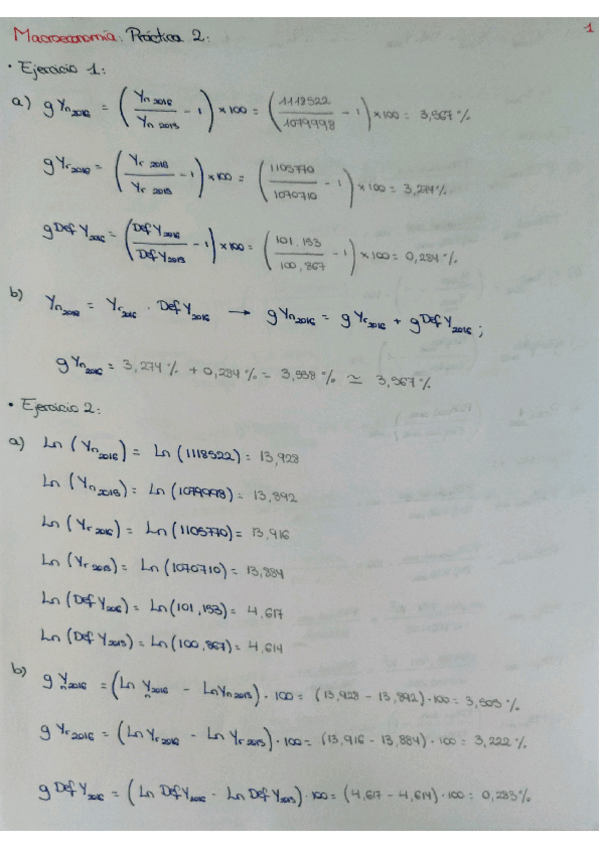 1
Macroeconomía: Práctica 2:
• Ejercicio 1:
a) g Yn2016 = (Yn 2016 / Yn 2015 - 1) × 100 = (1118522 / 1079998 - 1) × 100 = 3,567 %
g Yr2016 = (Yr 2016 / Yr 2015 - 1) × 100 = (1105770 / 1070710 - 1) × 100 = 3,274 %
g Def Y2016 = (Def Y2016 / Def Y2015 - 1) × 100 = (101.153 / 100,867 - 1) × 100 = 0,284 %
b) Yn2016 = Yr2016 · Def Y2016 → g Yn2016 = g Yr2016 + g Def Y2016 ;
g Yn2016 = 3,274 % + 0,284 % = 3,558 % ≃ 3,567 %
• Ejercicio 2:
a) Ln (Yn2016) = Ln (1118522) = 13,928
Ln (Yn2015) = Ln (1079998) = 13,892
Ln (Yr 2016) = Ln (1105770) = 13,916
Ln (Yr 2015) = Ln (1070710) = 13,884
Ln (Def Y2016) = Ln (101,153) = 4,617
Ln (Def Y2015) = Ln (100,867) = 4,614
b) g Yn2016 = (Ln Yn2016 - Ln Yn2015) · 100 = (13,928 - 13,892) · 100 = 3,505 %
g Yr2016 = (Ln Yr2016 - Ln Yr2015) · 100 = (13,916 - 13,884) · 100 = 3,222 %
g Def Y2016 = (Ln Def Y2016 - Ln Def Y2015) · 100 = (4,617 - 4,614) · 100 = 0,283 %